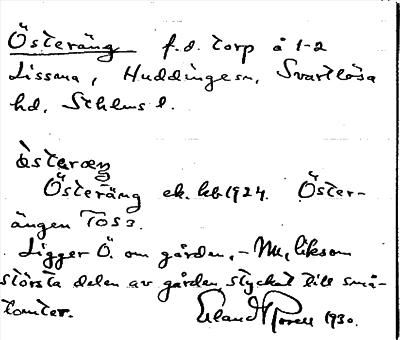 Österäng f.d. torp å 1-2
Lissma, Huddinge sn, Svartlösa
hd, Sthlms l.
östəræŋ
Österäng ek. kb 1924. Öster-
ängen T 053.
Ligger Ö. om gården, – Nu, liksom
största delen av gården, styckat till små-
tomter.
Erland 1930.